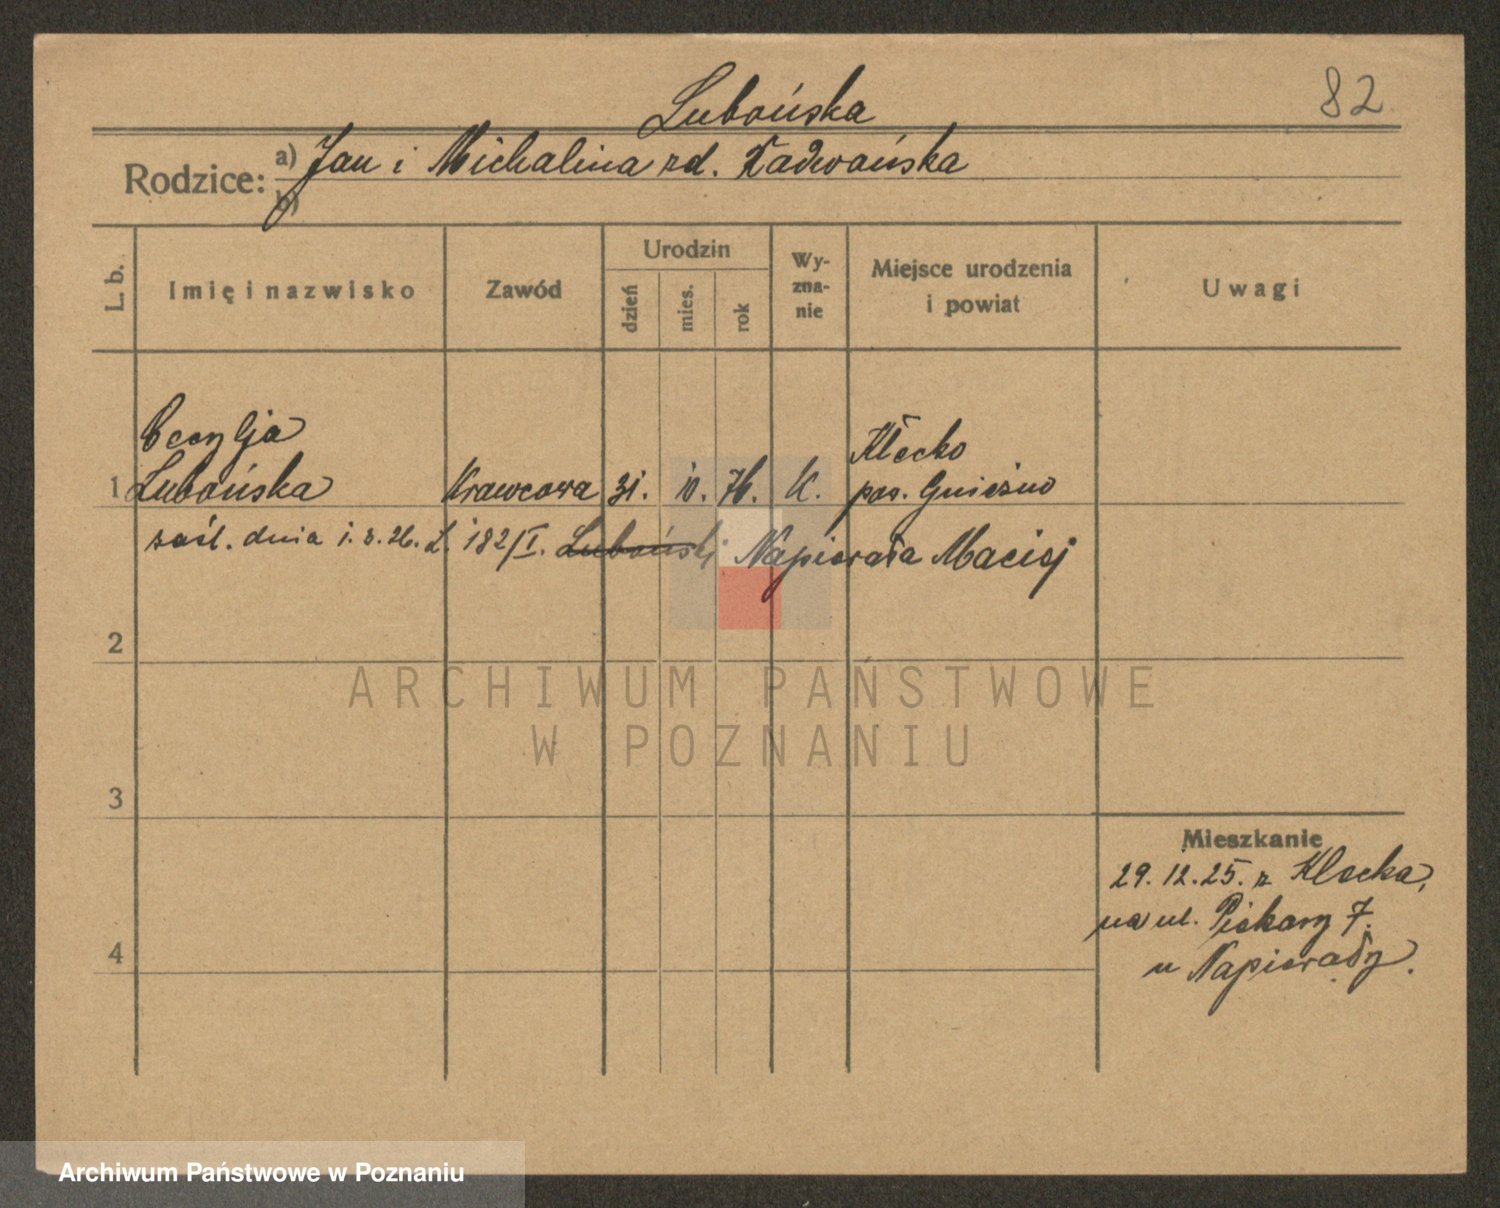 Lubońska
82
Rodzice:
a) Jan i Michalina rd. Radwańska
b)
L. b.
Imię i nazwisko
Zawód
Urodzin
dzień
mies.
rok
Wy-
zna-
nie
Miejsce urodzenia
i powiat
Uwagi
Cecylja
Lubońska
1
Krawcowa
31.
10.
76.
K.
Kłecko
pow. Gniezno
zaśl. dnia 1. 2. 26. L. 182/I. Luboński Napierała Maciej
2
ARCHIWUM PAŃSTWOWE
W POZNANIU
3
Mieszkanie
29. 12. 25. z Klecka,
na ul. Piekary 7.
u Napierały.
4
Archiwum Państwowe w Poznaniu